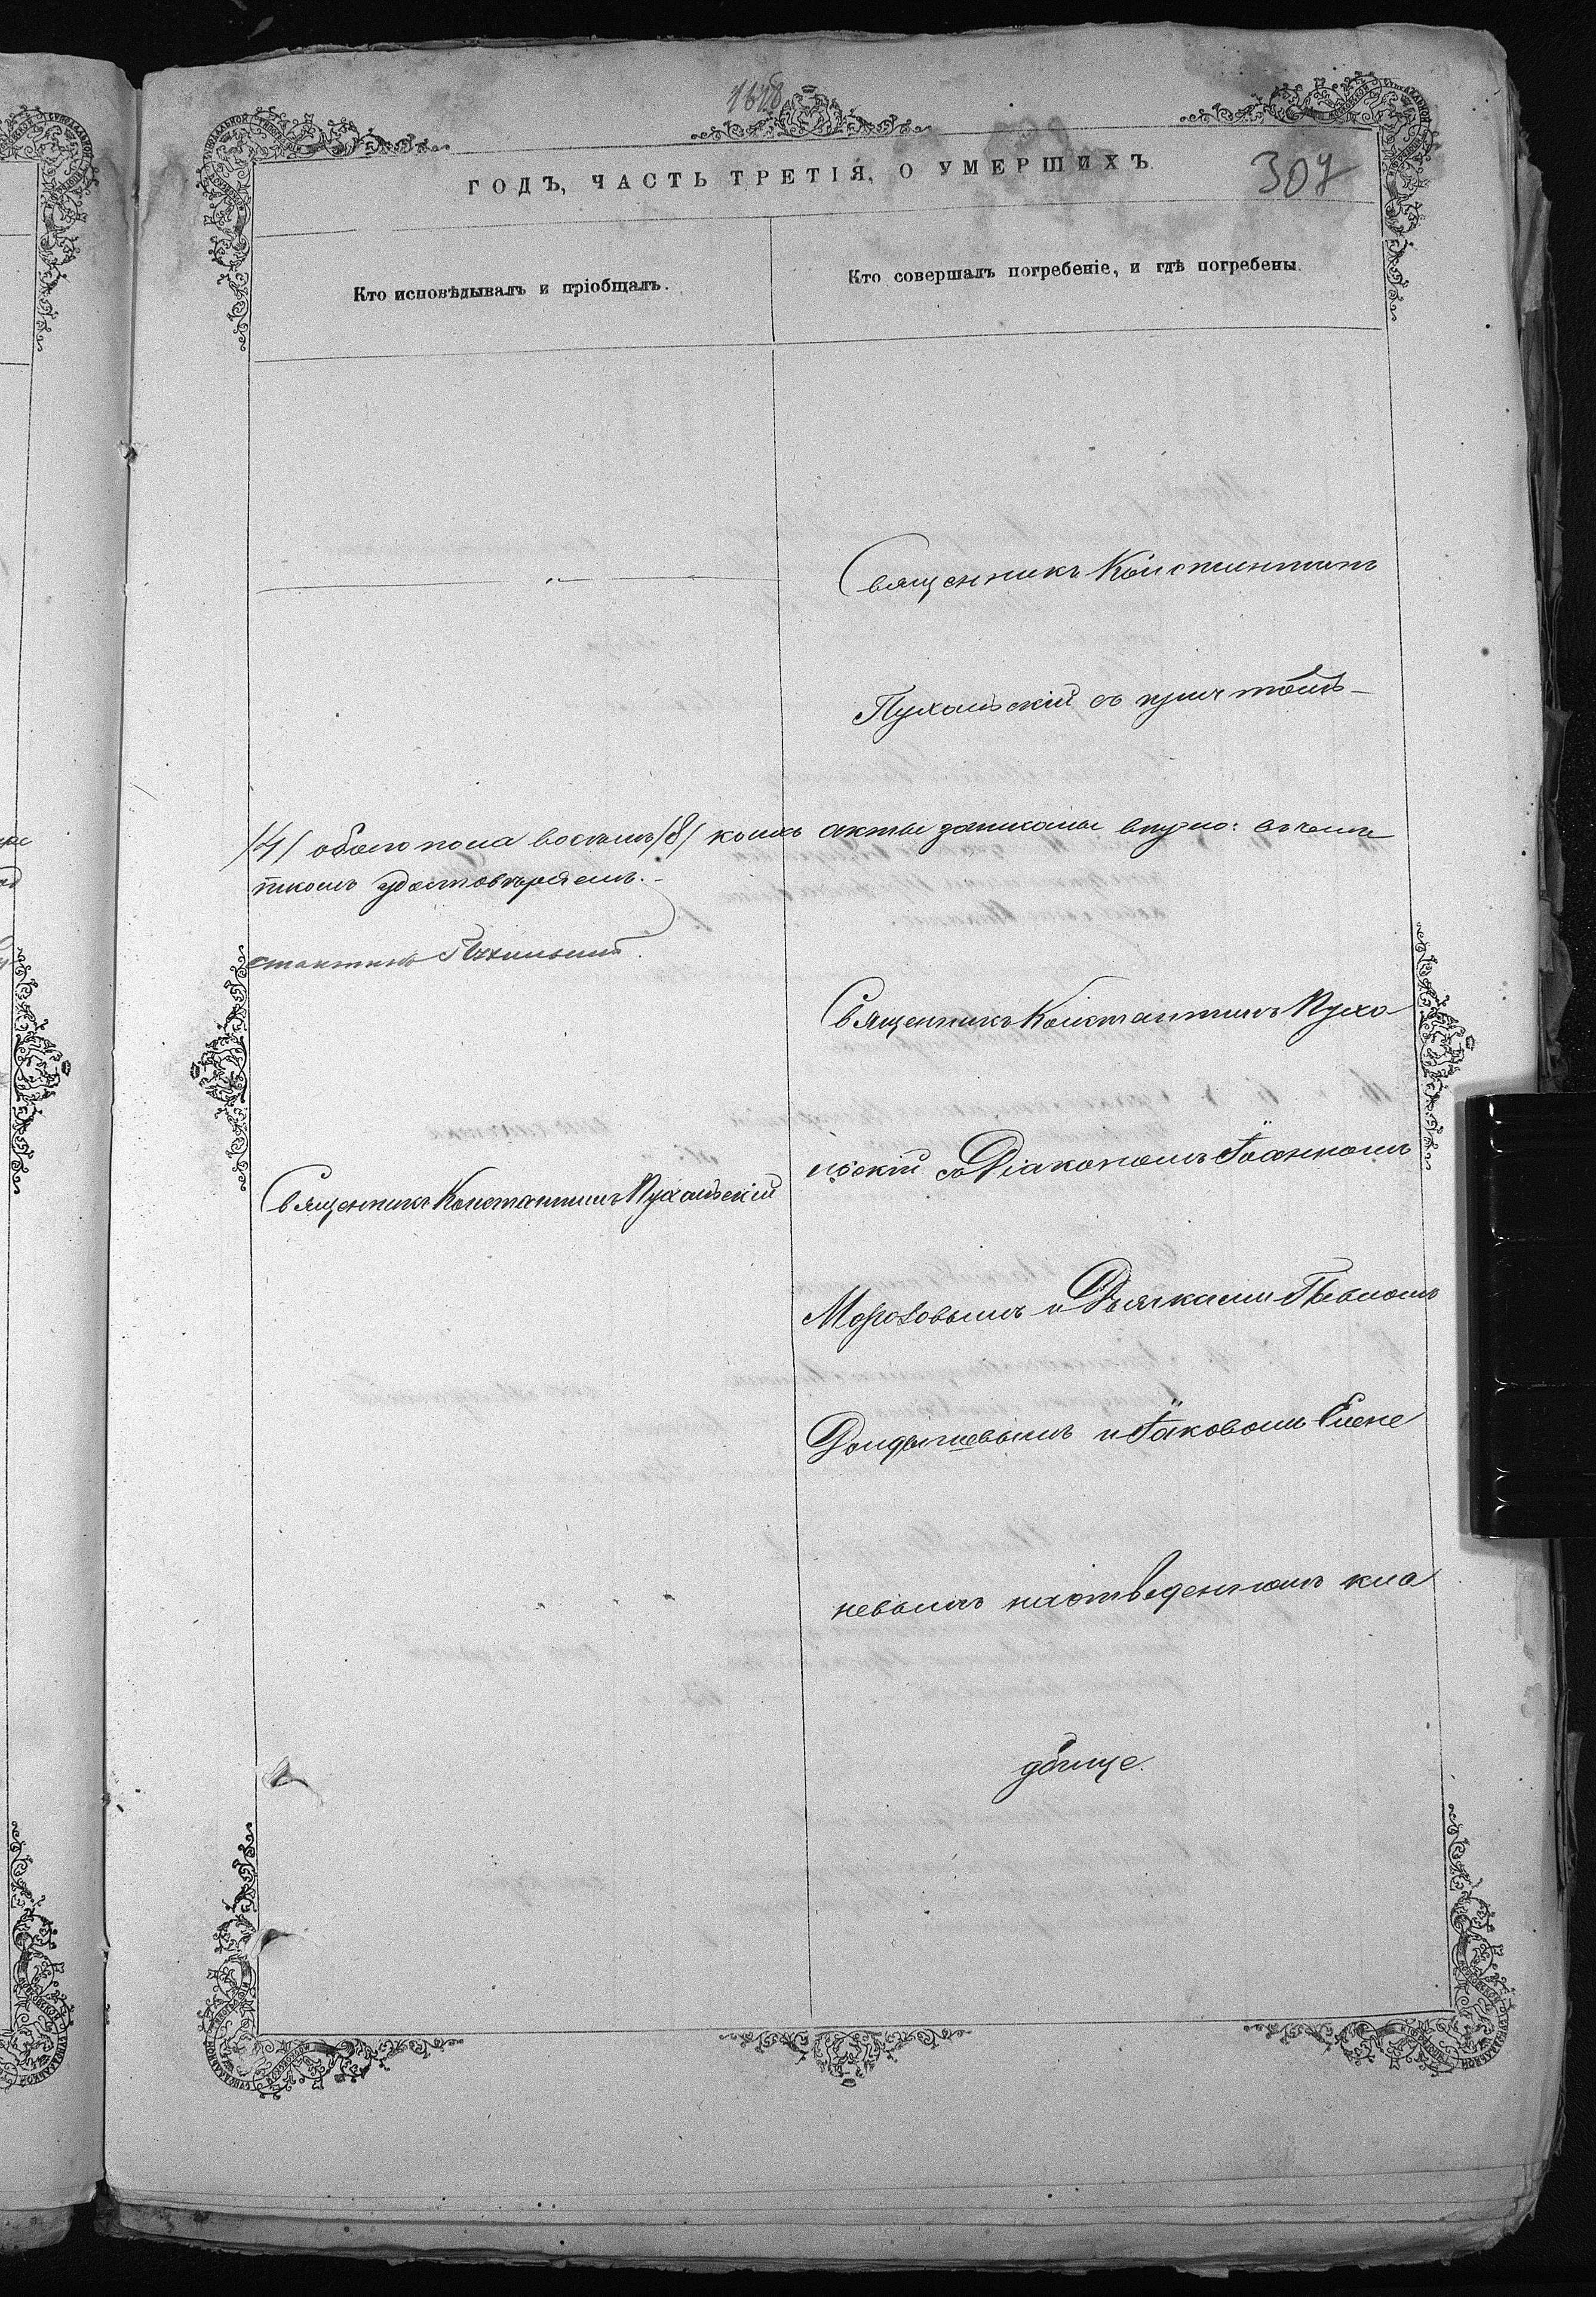 307
ГОДЪ, ЧАСТЬ ТРЕТІЯ, О УМЕРШИХЪ.
Кто исповѣдывалъ и пріобщалъ.
Кто совершалъ погребеніе, и гдѣ погребены.
Священникъ Константинъ
Пухальскій съ причтомъ
/4/ обоего пола восемь /8/ коихъ акты записаны
удостовѣряемъ.
Священникъ Константинъ Пухальскій
Священникъ Константинъ Пуха
льскій съ Діакономъ Іоанномъ
Морозовымъ и Дьячками
и Іаковомъ Семе
невымъ на отведенномъ кла
дбище.